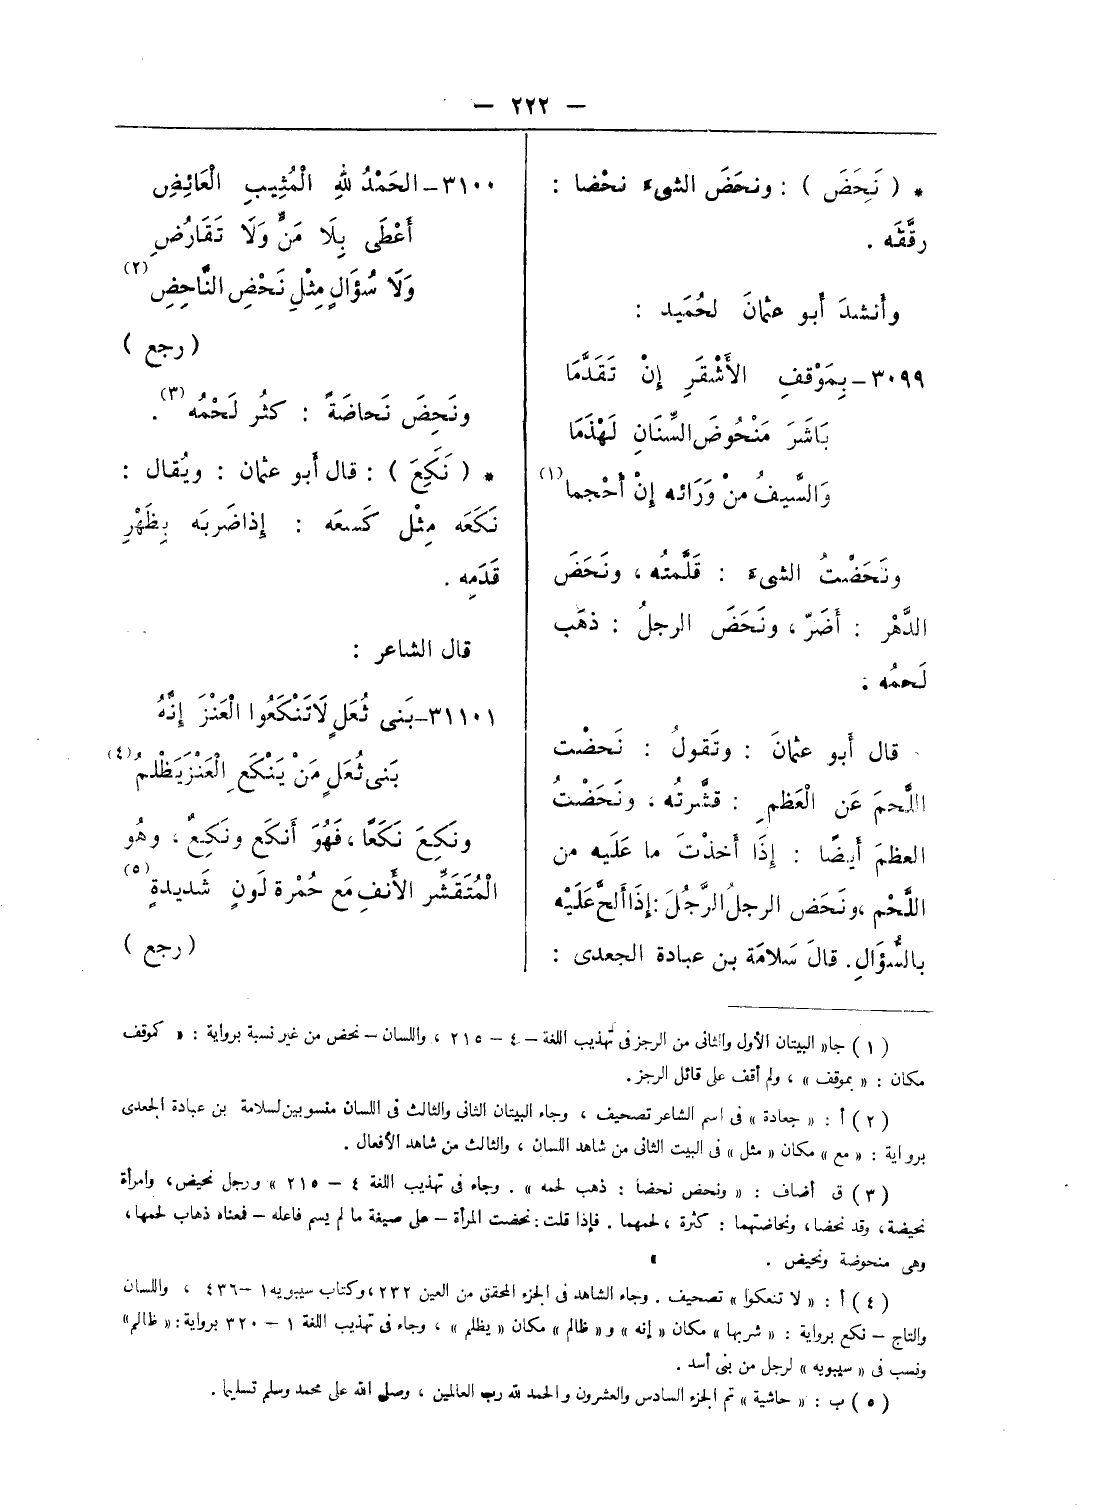 — ٢٢٢ —
* ( نَحَضَ ) : ونحَضَ الشىءَ نحْضا :
رقَّقَه .
وأنشدَ أبو عثمانَ لحُمَيد :
٣٠٩٩ـ بِمَوْقفِ الأَشْقَرِ إنْ تَقَدَّمَا
بَاشَرَ مَنْحُوضَ السِّنَانِ لَهْذَمَا
وَالسَّيفُ منْ وَرَائه إنْ أحْجما (١)
ونَحَضْتُ الشىءَ : قَلَّمتُه ، ونَحَضَ
الدَّهْر : أَضَرّ ، ونَحَضَ الرجلُ : ذهَب
لَحمُه :
قال أبو عثمانَ : وتَقولُ : نَحضْت
اللَّحمَ عَن الْعَظمِ : قشَّرتُه ، ونَحَضْتُ
العظمَ أيضًا : إذَا أخذْتَ ما عَلَيه من
اللَّحْم ، ونَحَض الرجلُ الرَّجُلَ : إذَا ألحَّ عَلَيْه
بالسُّؤَالِ . قالَ سَلامَة بن عبادة الجعدى :
٣١٠٠ـ الحَمْدُ للهِ الْمُثِيبِ الْعَائِضِ
أَعْطَى بِلَا مَنٍّ وَلَا تَقَارُضِ
وَلَا سُؤَالٍ مِثْلِ نَحْضِ النَّاحِضِ (٢)
( رجع )
ونَحِضَ نَحاضَةً : كثُر لَحْمُه (٣) .
* ( نَكَعَ ) : قال أبو عثمان : ويُقال :
نَكَعَه مِثْل كَسعَه : إذا ضَربَه بِظَهْرِ
قَدَمِه .
قال الشاعر :
٣١١٠١ـ بَنى ثُعَلٍ لَا تَنْكَعُوا الْعَنْزَ إنَّهُ
بَنى ثُعَلٍ مَنْ يَنْكَعِ الْعَنْزَ يَظْلمُ (٤)
ونَكِعَ نَكَعًا ، فَهُوَ أنكَع ونَكِعٌ ، وهُو
الْمُتَقَشِّر الأنفِ مَع حُمْرة لَونٍ شَديدةٍ (٥)
( رجع )
( ١ ) جاء البيتان الأول والثانى من الرجز فى تهذيب اللغة – ٤ – ٢١٥ ، واللسان – نحض من غير نسبة برواية : « كموقف
مكان : « بموقف » ، ولم أقف على قائل الرجز .
( ٢ ) أ : « جعادة » فى اسم الشاعر تصحيف ، وجاء البيتان الثانى والثالث فى اللسان منسوبين لسلامة بن عبادة الجعدى
برواية : « مع » مكان « مثل » فى البيت الثانى من شاهد اللسان ، والثالث من شاهد الأفعال .
( ٣ ) ق أضاف : « ونحض نحضا : ذهب لحمه » . وجاء فى تهذيب اللغة ٤ – ٢١٥ » ورجل نحيض ، وامرأة
نحيضة ، وقد نحضا ، ونحاضتهما : كثرة ، لحمهما . فإذا قلت : نحضت المرأة – على صيغة ما لم يسم فاعله – فمعناه ذهاب لحمها ،
وهى منحوضة ونحيض .
( ٤ ) أ : « لا تنعكوا » تصحيف . وجاء الشاهد فى الجزء المحقق من العين ٢٣٢ ، وكتاب سيبويه ١ – ٤٣٦ ، واللسان
والتاج – نكع برواية : « شربها » مكان « إنه » و « ظالم » مكان « يظلم » ، وجاء فى تهذيب اللغة ١ – ٣٢٠ برواية : « ظالم »
ونسب فى « سيبويه » لرجل من بنى أسد .
( ٥ ) ب : « حاشية » تم الجزء السادس والعشرون والحمد لله رب العالمين ، وصلى الله على محمد وسلم تسليما .